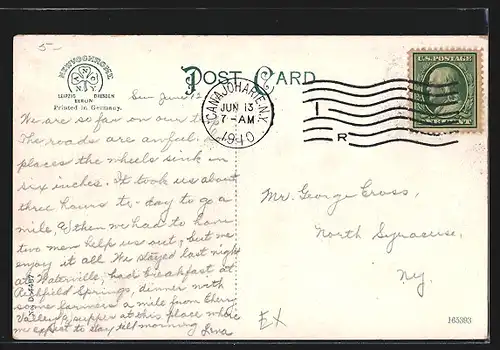 5-
NEWVOCHROME
N.Y.
LEIPZIG DRESDEN
BERLIN
Printed in Germany.
POST CARD
CANAJOHARIE, N.Y.
JUN 13
7-AM
1910
I
R
U.S. POSTAGE
Sun June 12
We are so far on our
The roads are awful.
places the wheels sink in
six inches. It took us about
three hours to-day to go a
mile & then we had to have
two men help us out, but we
enjoy it all We stayed last night
at Waterville, had breakfast at
Richfield Springs, dinner with
some farmers a mile from Cherry
Valley & supper at this place where
we expect to stay till morning
Mr. George Cross,
North Syracuse,
N.y.
EX
165393